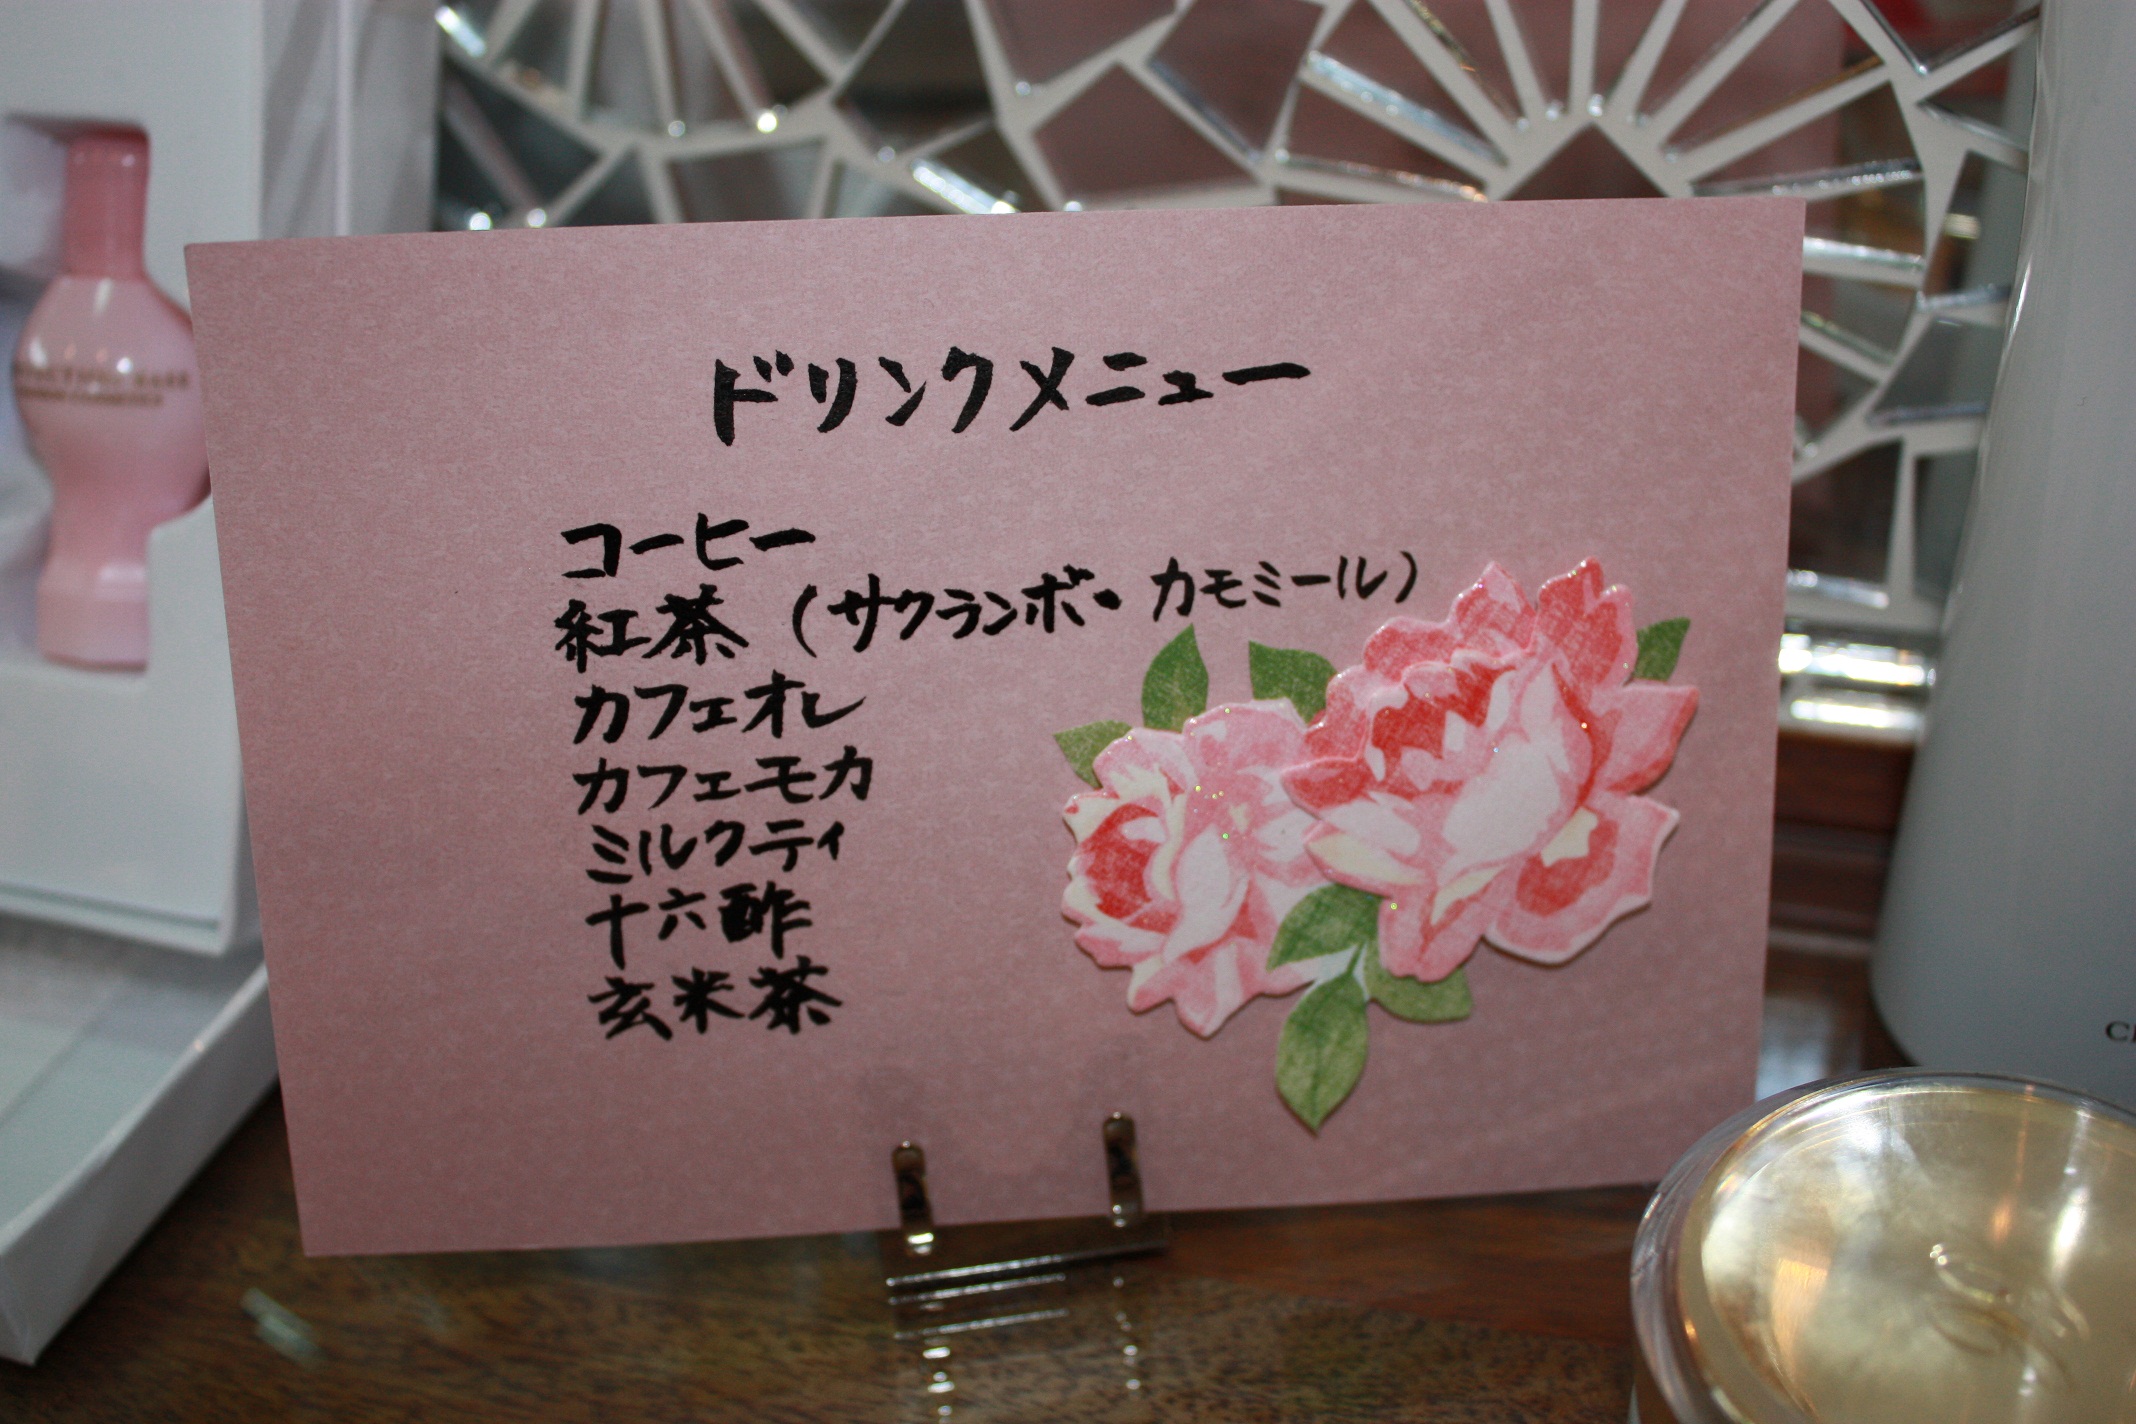 ドリンクメニュー
コーヒー
紅茶（サクランボ・カモミール）
カフェオレ
カフェモカ
ミルクティ
十六酢
玄米茶